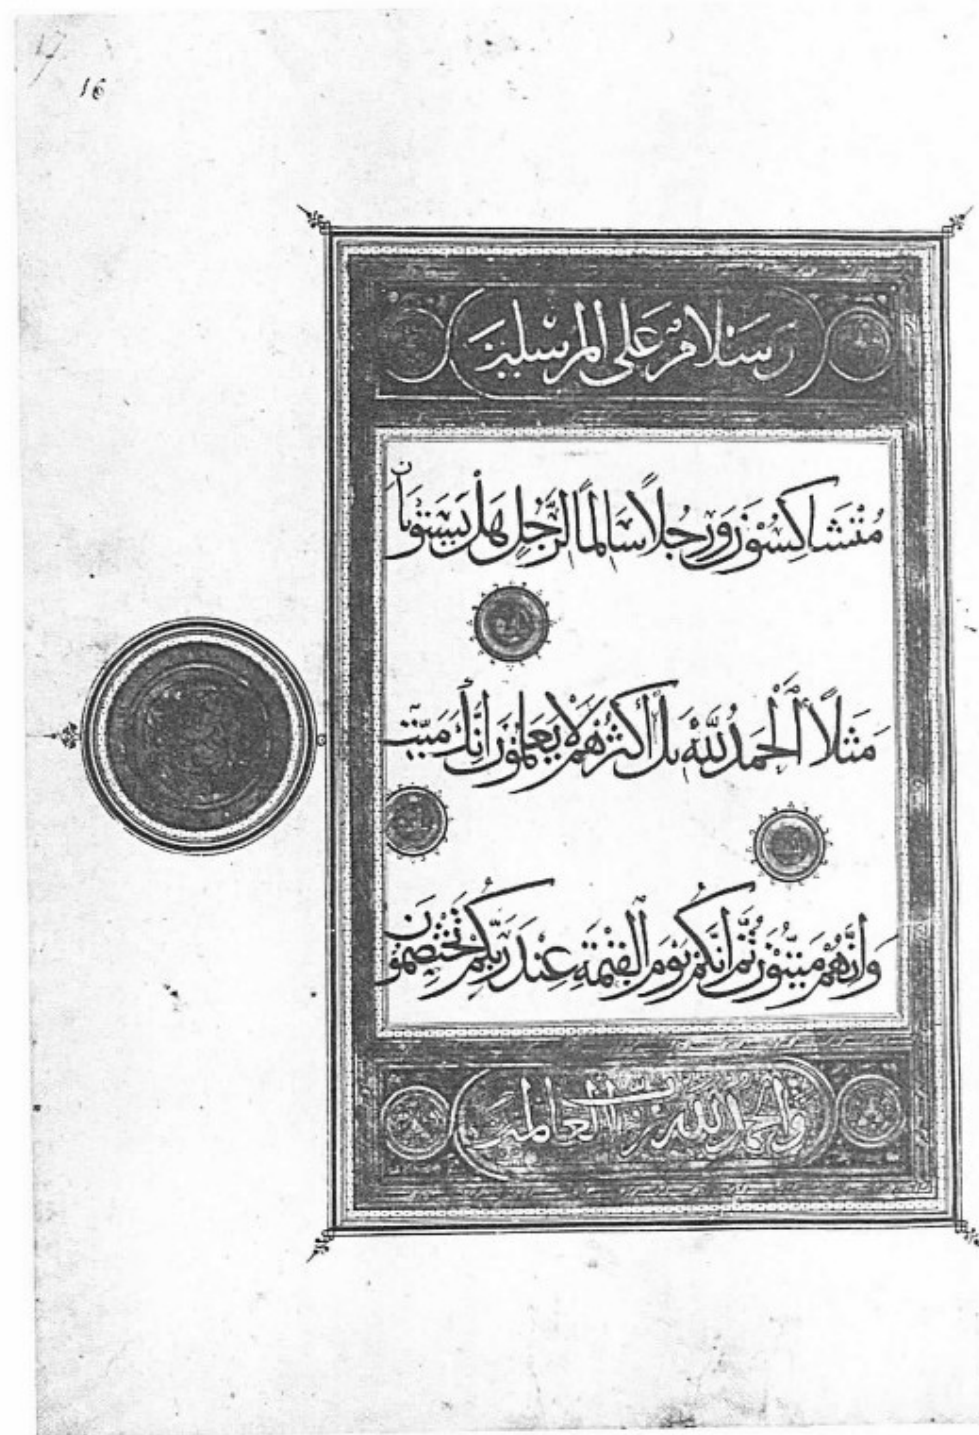 17
16
وسلام على المرسلين
مُتَشَاكِسُونَ وَرَجُلاً سَالِمًا لِرَجُلٍ هَلْ يَسْتَوِيَانِ
مَثَلاً ٱلْحَمْدُ لِلَّهِ بَلْ أَكْثَرُهُمْ لَا يَعْلَمُونَ إِنَّكَ مَيِّتٌ
وَإِنَّهُمْ مَيِّتُونَ ثُمَّ إِنَّكُمْ يَوْمَ ٱلْقِيٰمَةِ عِنْدَ رَبِّكُمْ تَخْتَصِمُونَ
والحمد لله رب العالمين